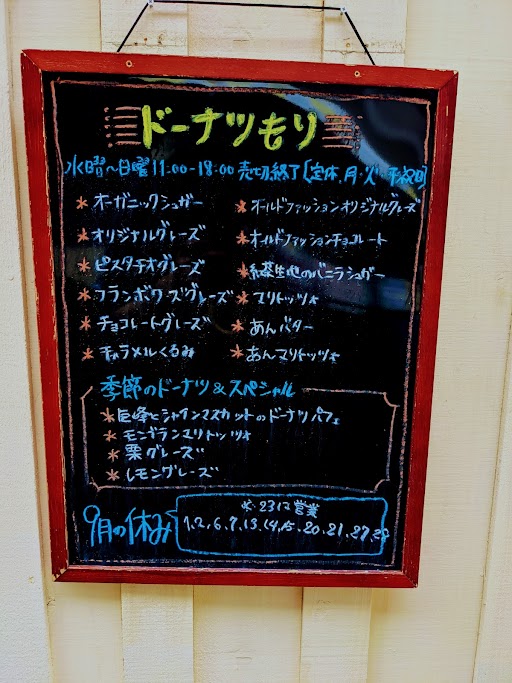 ドーナツもり
水曜〜日曜 11:00-18:00 売切終了 [定休.月・火・平祝日]
*オーガニックシュガー
*オリジナルグレーズ
*ピスタチオグレーズ
*フランボワーズグレーズ
*チョコレートグレーズ
*キャラメルくるみ
*オールドファッションオリジナルグレーズ
*オールドファッションチョコレート
*紅茶生地のバニラシュガー
*マリトッツォ
*あんバター
*あんマリトッツォ
季節のドーナツ&スペシャル
*巨峰とシャインマスカットのドーナツパフェ
*モンブランマリトッツォ
*栗グレーズ
*レモングレーズ
9月の休み
※23は営業
1.2.6.7.13.14.15.20.21.27.28